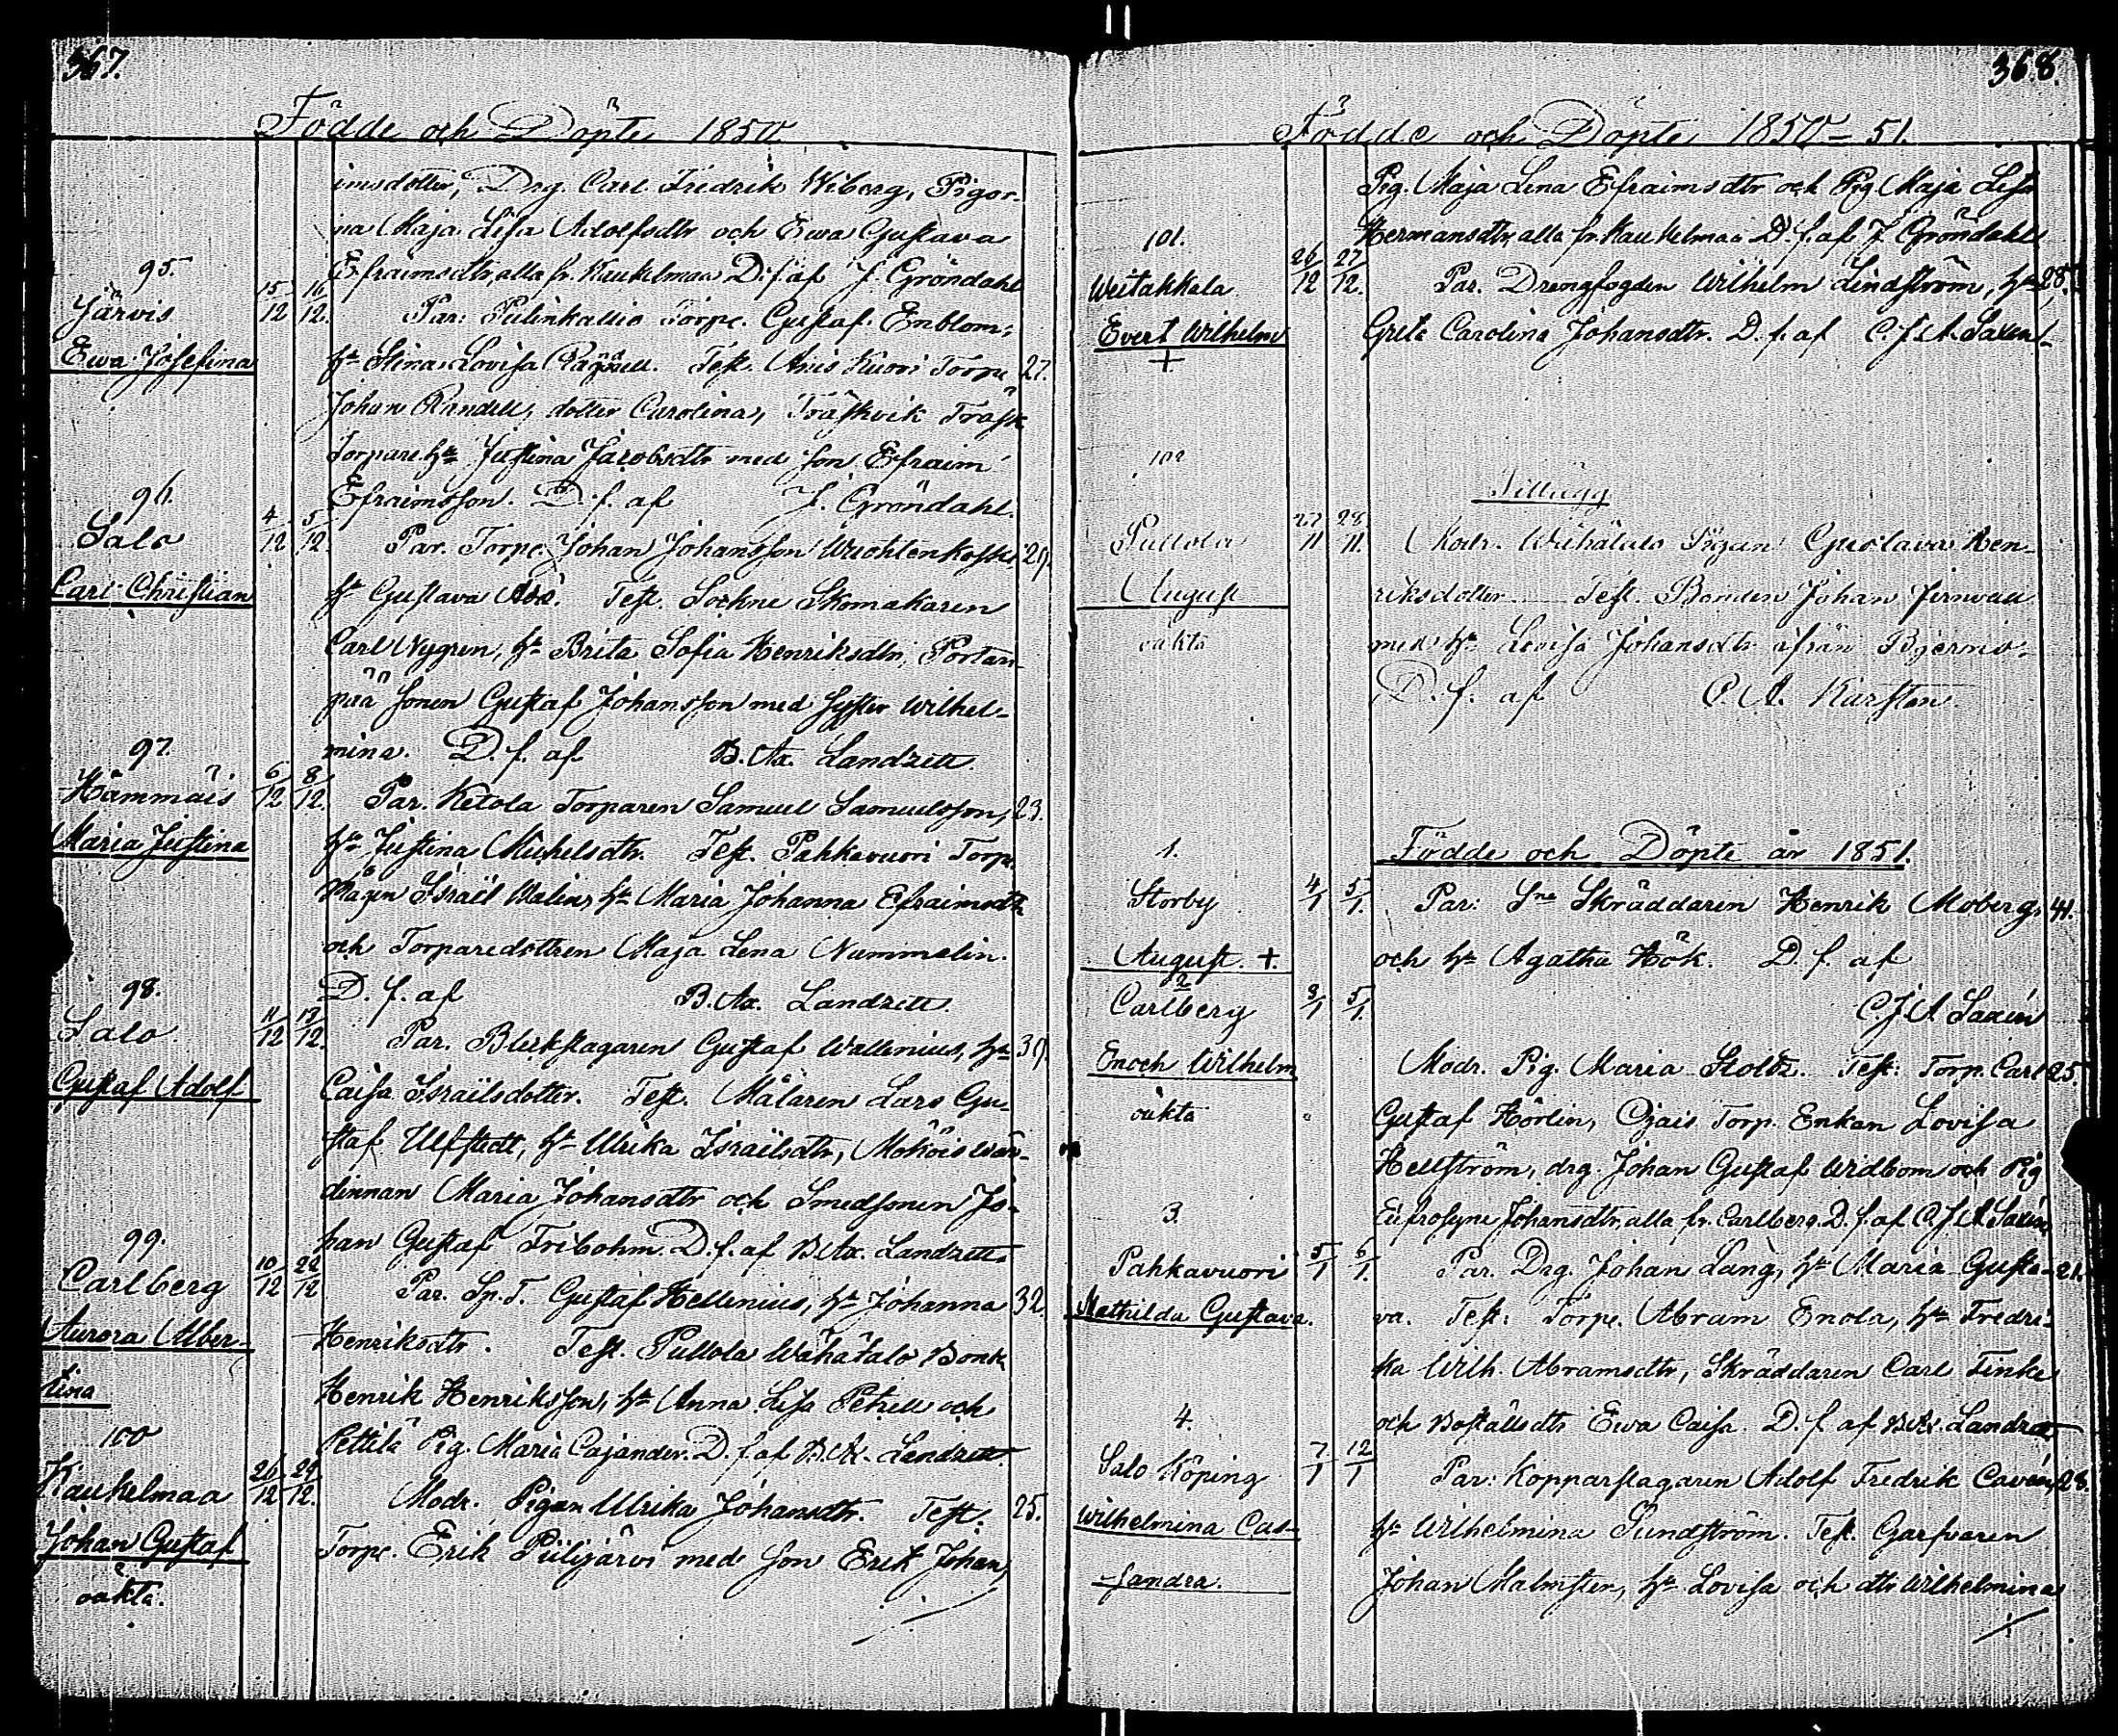 367.
Födde och Döpte 1850
imsdotter, Drg. Carl Fredrik Wiberg, Pigor-
na Maja Lisa Adolfsdtr och Ewa Gustava
95.
Efraimsdtr, alla fr. Kaukelmaa D. f. af J. Gröndahl
Järvis 15/12 16/12. Par: Torpr. Gustaf Enblom,
Ewa Josefina
hu Stina Lovisa Test. Torpr 27.
Johan Randell, dotter Carolina, Träskvik Träsk
Torpare hu Justina Jacobsdtr med son Efraim
96.
Efraimsson. D. f. af J. Gröndahl.
Salo 4/12 5/12. Par. Torpr. Johan Johansson Wuohtenkoski 29.
Carl Christian
hu Gustava Test. Sockne Skomakaren
Carl Nygren, hu Brita Sofia Henriksdtr, Portan-
pää sonen Gustaf Johansson med syster Wilhel-
97.
mina. D. f. af B. Ax. Landzett
Hämmäis 6/12 8/12. Par. Ketola Torparen Samuel Samuelsson, 23.
Maria Justina
hu Justina Michelsdtr. Test. Pahkavuori Torp.
Mågen Israël Walin, hu Maria Johanna Efraimsdtr
och Torparedottren Maja Lena Nummelin.
98.
D. f. af B. Ax. Landzett.
Salo. 11/12 13/12. Par. Bleckslagaren Gustaf Wallenius, hu 39.
Gustaf Adolf
Caisa Israïlsdotter. Test. Målaren Lars Gu-
staf Ulfstedt, hu Ulrika Israïlsdtr, Moisio wär-
dinnan Maria Johansdtr och Smedsonen Jo-
99.
han Gustaf Fribohm. D. f. af B. Ax. Landzett
Carlberg 10/12 22/12 Par. Sp. T. Gustaf Hellenius, hu Johanna 32.
Aurora Alber-
tina
Henriksdtr. Test. Pullola Wähätalo Bonk
Henrik Henriksson, hu Anna Lisa Petrell och
100
Pettilä Pig. Maria Cajander. D. f. af B. Ax. Landzett
Kaukelmaa 26/12 29/12. Modr. Pigan Ulrika Johansdtr. Test. 25.
Johan Gustaf
oäkta.
Torpr. Erik Piilijärvi med son Erik Johan,
368.
Födde och Döpte 1850-51.
Pig. Maja Lena Efraimsdtr och Pig Maja Lisa
101.
Hermansdtr, alla fr. Kaukelmaa D. f. af J. Gröndahl
Weitakkala 26/12 27/12. Par. Drengfogden Wilhelm Lindström, hu 28.
Evert Wilhelm
+
Greta Carolina Johansdtr. D. f. af C. J. A. Saxen
102
Tillägg
Pullola 27/11 28/11. Modr. Wähätalo Pigan Gustava Hen-
August
riksdotter Test. Bonden Johan
oäkta
med hu Lovisa Johansdtr ifrån Bjerno.
D. f. af
1.
Födde och Döpte år 1851.
Storby 4/1 5/1. Par: Sne Skräddaren Henrik Moberg, 41.
August. +.
och hu Agatha Hök. D. f. af
2
Carlberg 3/1 5/1. C. J. A Saxén
Enoch Wilhelm
Modr. Pig. Maria Stoltz. Test: Torp. Carl 25.
oäkta
Gustaf Hörlin, Torp. Enkan Lovisa
Hellström, drg. Johan Gustaf Widbom och Pig
3.
Eufrosyne Johansdtr, alla fr. Carlberg. D. f. af C. J. A Saxén
Pahkavuori 5/1 6/1. Par. Drg. Johan Lång, hu Maria Gusta- 21.
Mathilda Gustava.
va. Test: Torpr. Abram Enola, hu Fredri-
ka Wilh. Abramsdtr, Skräddaren Carl Finke
4.
och Boställsdtr Ewa Caisa. D. f. af B. Ax. Landzett
Salo Köping 7/1 12/1 Par: Kopparslagaren Adolf Fredrik Cavén, 28.
Wilhelmina Cas-
sandra.
hu Wilhelmina Sundström. Test. Garfvaren
Johan Malmsten, hu Lovisa och dtr Wilhelmina